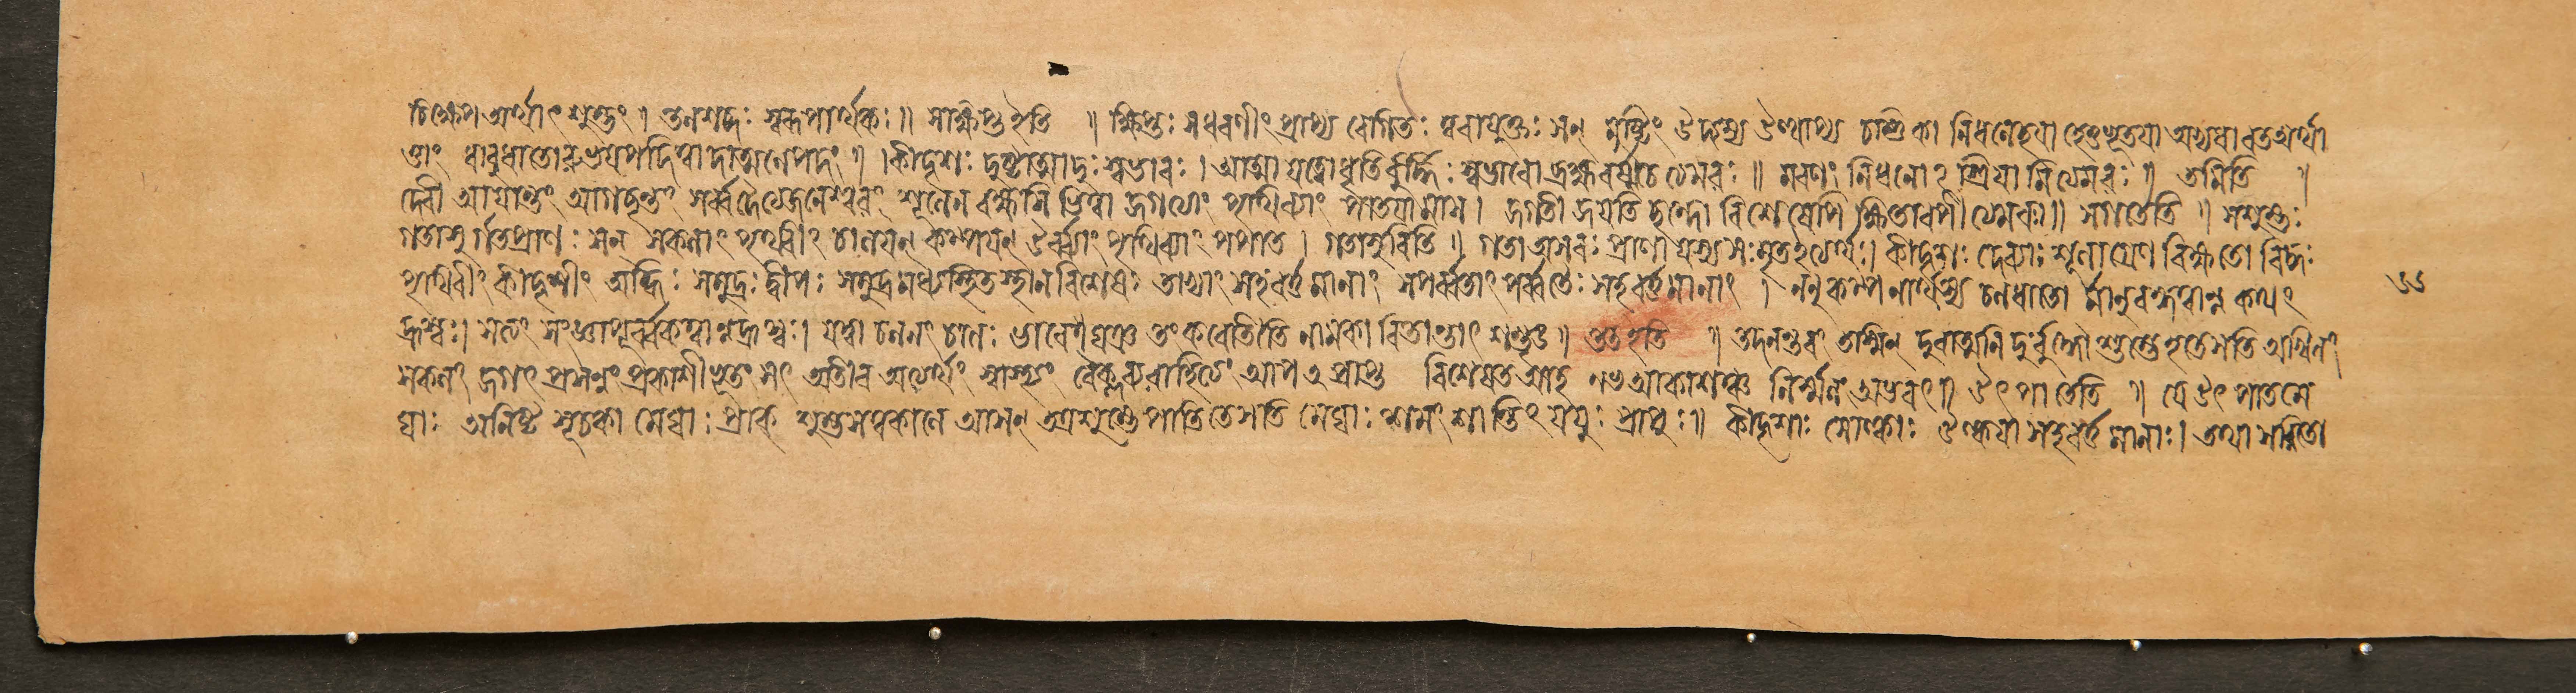 চিক্ষেপ অর্থাৎ শুম্ভং । তলশব্দঃ স্বরূপার্থকঃ ॥ স ক্ষিপ্ত ইতি ॥ ক্ষিপ্তঃ স ধরণীং প্রাপ্য বেগিতঃ ত্বরাযুক্তঃ সন্ মুষ্টিং উদ্যম্য উত্থাপ্য চণ্ডিকা নিধনেচ্ছয়া হেতুভূতয়া অভ্যধাবত অর্থা
ত্তাং ধাবুধাতোরুভয়পদিত্বাদাত্মনেপদং ॥ কীদৃশঃ দুষ্টাত্মা দুঃস্বভাবঃ । আত্মা যত্নো ধৃতির্বুদ্ধিঃ স্বভাবো ব্রহ্ম বর্ষ্ম চেত্যমরঃ ॥ মরণং নিধনোঽস্ত্রিয়ামিত্যমরঃ ॥ তমিতি ॥
দেবী আয়ান্তং আগচ্ছন্তং সর্ব্বদৈত্যজনেশ্বরং শূলেন বক্ষসি ভিত্ত্বা জগত্যাং পৃথিব্যাং পাতয়ামাস । জগতী জগতি ছন্দো বিশেষেপি ক্ষিতাবপীত্যমরঃ ॥ স গতেতি ॥ স শুম্ভঃ
গতাসু র্গতপ্রাণঃ সন্ সকলাং পৃথ্বীং চালয়ন্ কম্পয়ন্ উর্ব্ব্যাং পৃথিব্যাং পপাত । গতাসুরিতি ॥ গতা অসবঃ প্রাণা যস্য সঃ মৃত ইত্যর্থঃ । কীদৃশঃ দেব্যাঃ শূলাগ্রেণ বিক্ষতো বিদ্ধঃ
পৃথিবীং কীদৃশীং অব্ধিঃ সমুদ্রঃ দ্বীপঃ সমুদ্রমধ্যস্থিত স্থানবিশেষঃ তাভ্যাং সহ বর্ত্তমানাং সপর্ব্বতাং পর্ব্বতৈঃ সহ বর্ত্তমানাং । ননু কম্পনার্থস্য চলধাতো র্মানুবন্ধত্বান্ন কথং
হ্রস্বঃ । সত্যং সংজ্ঞাপূর্ব্বকত্বান্ন হ্রস্বঃ । যদ্বা চলনং চালঃ ভাবে ঘঞ্ তং করোতীতি নামকারিতান্তাৎ শন্তৃঙ ॥ তত ইতি ॥ তদনন্তরং তস্মিন্ দুরাত্মনি দুর্বুদ্ধৌ শুম্ভে হতে সতি অখিলং
সকলং জগৎ প্রসন্নং প্রকাশীভূতং সৎ অতীব অত্যর্থং স্বাস্থ্যং বৈকুল্যরাহিত্যং আপ প্রাপ্ত বিশেষত আহ নভ আকাশঞ্চ নির্ম্মলং অভবৎ ॥ উৎপাতেতি ॥ যে উৎপাতমে
ঘাঃ অনিষ্ট সূচকা মেঘাঃ প্রাক্ শুম্ভসত্বকালে আসন্ তত্র শুম্ভে পাতিতে সতি মেঘাঃ শমং শান্তিং যযুঃ প্রাপুঃ ॥ কীদৃশাঃ সোল্কাঃ উল্কয়া সহ বর্ত্তমানাঃ । তথা সরিতো
৬৬